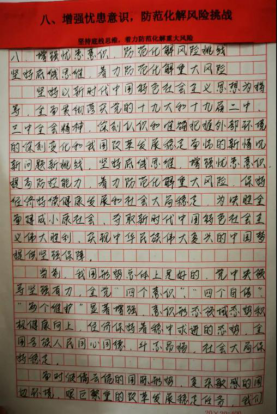 八、增强忧患意识,防范化解风险挑战
坚持底线思维,着力防范化解重大风险
八 增强忧患意识,防范化解风险挑战
坚持底线思维,着力防范化解重大风险
坚持以新时代中国特色社会主义思想为指
导,全面贯彻落实党的十九大和十九届二中、
三中全会精神,深刻认识和准确把握外部环境
的深刻变化和我国改革发展稳定面临的新情况
新问题新挑战,坚持底线思维,增强忧患意识,
提高防控能力,着力防范化解重大风险,保持
经济持续健康发展和社会大局稳定,为决胜全
面建成小康社会、夺取新时代中国特色社会主
义伟大胜利、实现中华民族伟大复兴的中国梦
提供坚强保障。
当前,我国形势总体上是好的,党中央领
导坚强有力,全党“四个意识”、“四个自信”、
“两个维护”显著增强,意识形态领域态势积
极健康向上,经济保持着稳中求进的态势,全
国各族人民同心同德、斗志昂扬,社会大局保
持稳定。
面对波谲云诡的国际形势、复杂敏感的周
边环境、艰巨繁重的改革发展稳定任务,我们